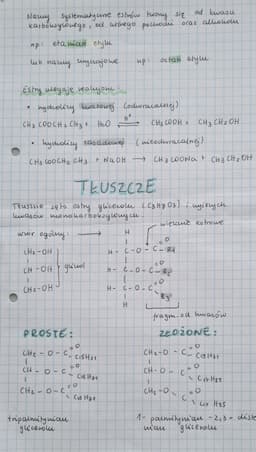 Nazwy systematyczne estrów tworzy się od kwasu
karboksylowego, od którego pochodzi oraz alkoholu
np: etanian etylu
lub nazwy zwyczajowe np: octan etylu
Estry ulegają reakcjom:
• hydrolizy kwasowej (odwracalnej)
CH3COOCH2CH3 + H2O ⇌ H+ CH3COOH + CH3CH2OH
• hydrolizy zasadowej (nieodwracalnej)
CH3COOCH2CH3 + NaOH → CH3COONa + CH3CH2OH
TŁUSZCZE
Tłuszcze są to estry glicerolu (C3H8O3) i wyższych
kwasów monokarboksylowych
wzór ogólny: H wiązanie estrowe
CH2-OH H-C-O-C=O R1
CH-OH glicerol H-C-O-C=O R2
CH2-OH H-C-O-C=O R3
H
fragm. od kwasów
PROSTE: ZŁOŻONE:
CH2-O-C=O C15H31 CH2-O-C=O C15H31
CH-O-C=O C15H31 CH-O-C=O C17H35
CH2-O-C=O C15H31 CH2-O-C=O C17H35
tripalmitynian 1-palmitynian-2,3-diste
glicerolu nian glicerolu